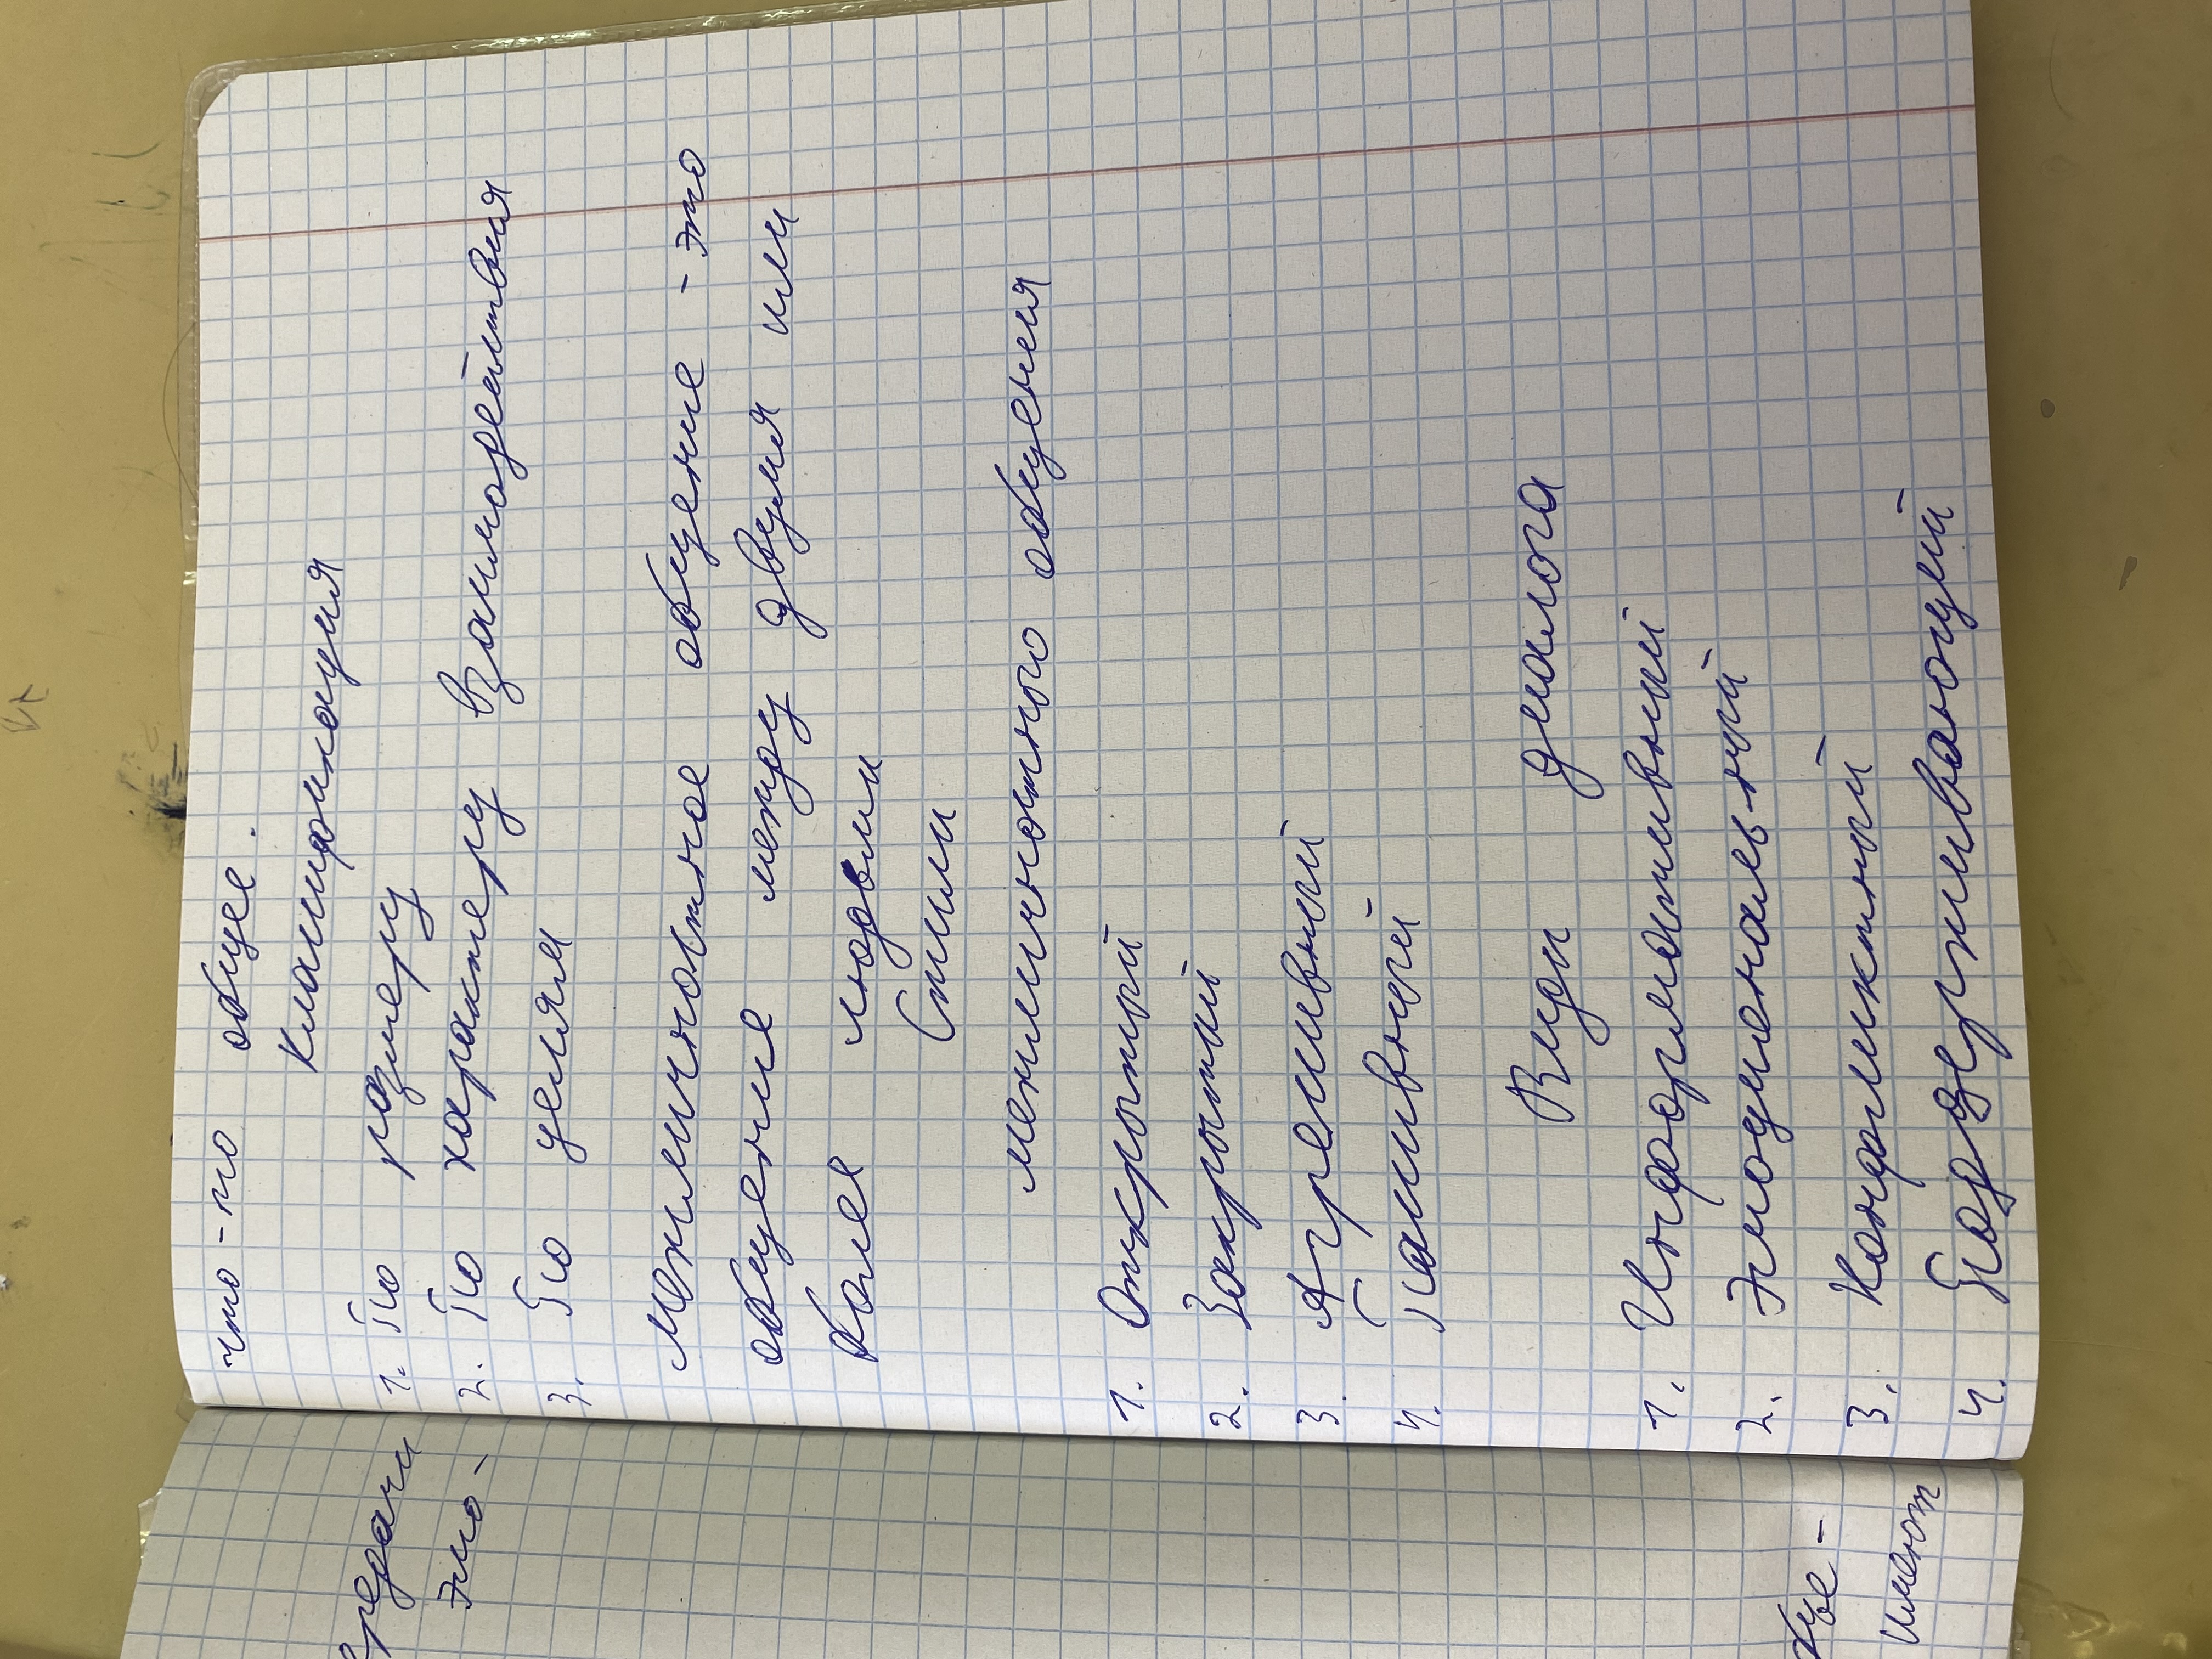 что-то общее.
Классификация
1. По размеру
2. По характеру взаимодействия
3. По целям
Межличностное общение - это
общение между двумя или
более людьми
Стили
межличностного общения
1. Открытый
2. Закрытый
3. Агрессивный
4. Пассивный
Виды диалога
1. Информативный
2. Эмоциональный
3. Конфликтный
4. Поддерживающий
ередачи
это -
имеют